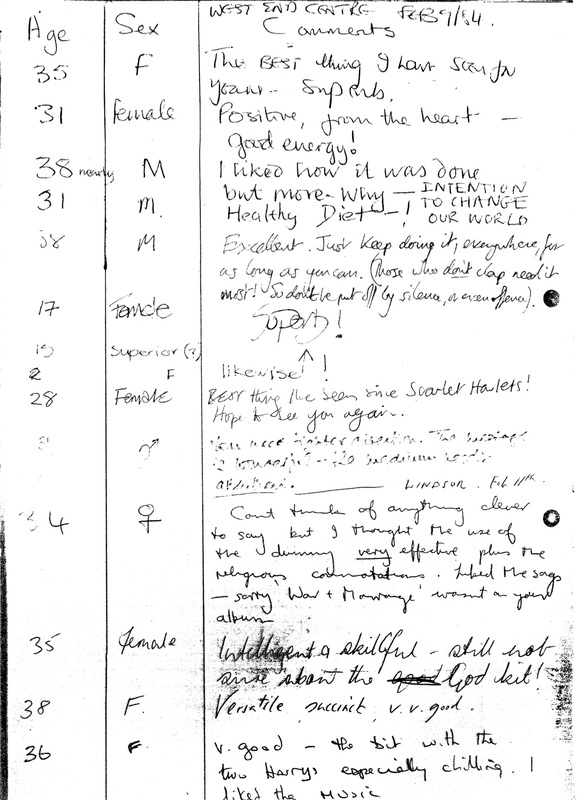 WEST END CENTRE FEB 9/84.
Age Sex Comments
35 F The BEST thing I have seen for
years - Superb.
31 female Positive, from the heart —
good energy!
38 nearly M I liked how it was done
31 M. but more - Why — INTENTION
TO CHANGE
Healthy Diet - ! OUR WORLD
38 M Excellent. Just keep doing it, everywhere, for
as long as you can. (Those who don't clap need it
most! So don't be put off by silence, or even offence).
17 Female Superb!
19 Superior (?)
2 F likewise !
28 Female BEST thing I've seen since Scarlet Harlets!
Hope to see you again..
♂ You need tighter direction. The message
is powerful - the medium needs
attention. LINDSOR. Feb 11th.
34 ♀ Can't think of anything clever
to say but I thought the use of
the dummy very effective plus the
religious connotations. Liked the songs
— sorry 'War + Marriage' wasn't on your
album
35 female Intelligent & skillful - still not
sure about the God bit!
38 F. Versatile succinct v.v. good.
36 F v. good - the bit with the
two Harrys especially chilling. I
liked the music